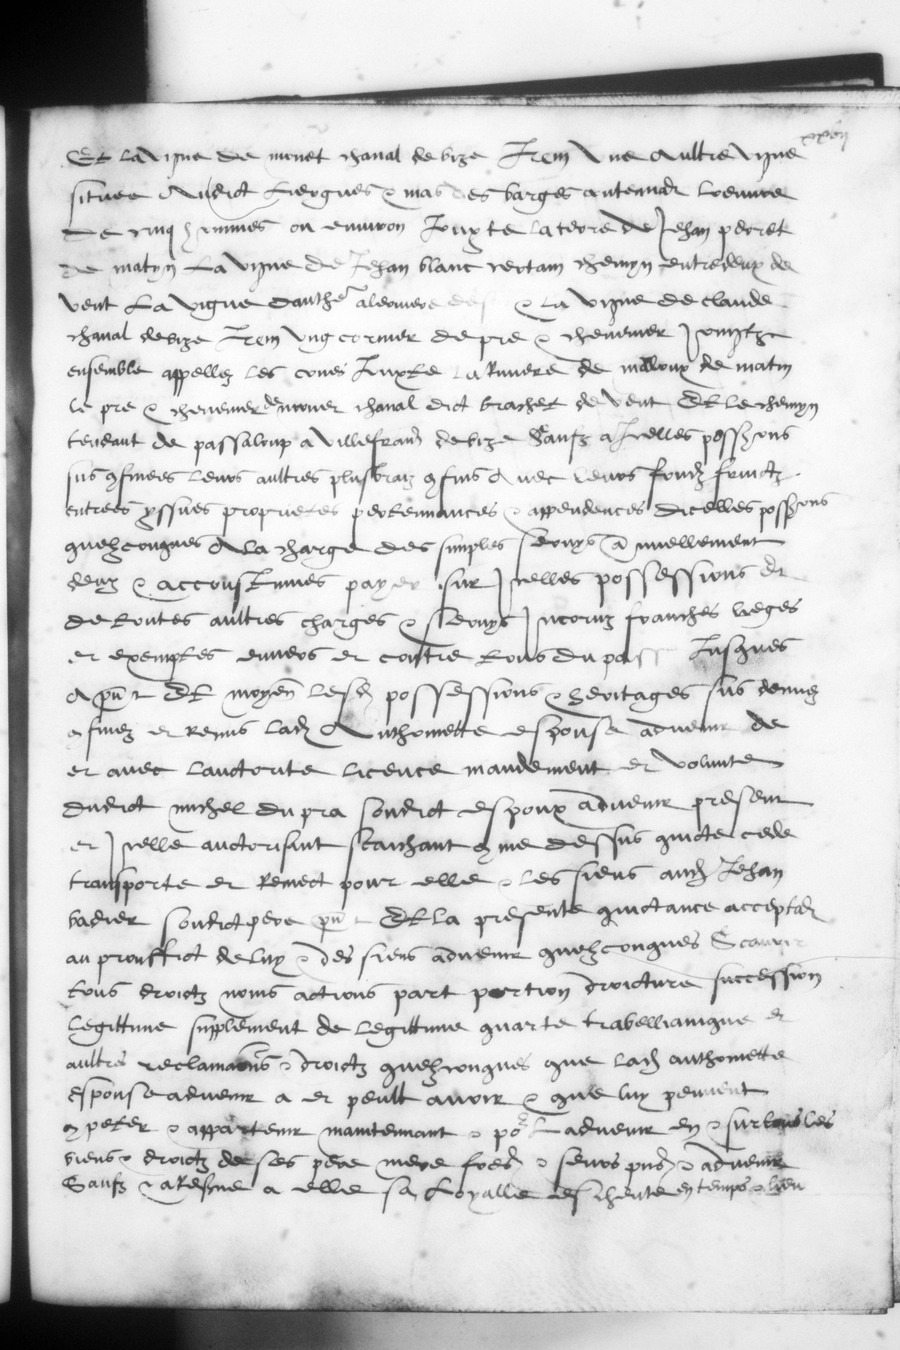 xxvij
Et la vigne de monet chanal de bize Item une aultre vigne
situee audict Liergues & mas des barges contenant loeuvre
de cinq hommes ou environ Jouxte la terre de Jehan perret
de matyn La vigne de Jehan blanc certain chemyn entredeux de
vent La vigne danthe & la vigne de claude
chanal de bize Item ung cornier de pre & chenevier joinctz
ensemble appellez les cones Jouxte la Riviere de de matin
le pre & chenevier de monet chanal dict brachet de vent Et le chemyn
tendant de passaloup a villefranche de bize Saufz a Icelles possions
sus confinees leurs aultres plus vraiz confins Avec leurs fondz fruictz
entrees yssues proprietes pertennances & appendences dicelles possions
quelzconques A la charge des simples servys annuellement
deuz & accoustumes payer sur Icelles possessions Et
de toutes aultres charges & servys Incoruz franches lieges
et exemptes envers et contre tous du passe Jusques
A pnt Et moyen lesd possessions & heritages sus donnez
confinez et Remis lad Anthomette espouse advenir de
et avec lauctorite licence mandement et volunte
dudict michel dupra sondict espoux advenir present
et Icelle auctorisant scaichant comme dessus quicte cede
transporte et Remect pour elle & les siens aud Jehan
badier sondict pere pnt Et la presente quictance acceptant
au prouffict de luy & des siens advenir quelzconques Scavoir
tous droictz noms actions part portion droicture succession
legittime supplement de legittime quarte trabellianique et
aultres reclamations & droictz quelzconques que lad anthomette
espouse advenir a et peult avoir & que luy peuvent
competer & appartenir maintenant & pour Ladvenir en & sur tous les
biens & droictz de ses pere mere freres & seurs pns & advenir
Saufz & a Reserve a elle sa Loyalle escheute en temps & lieu